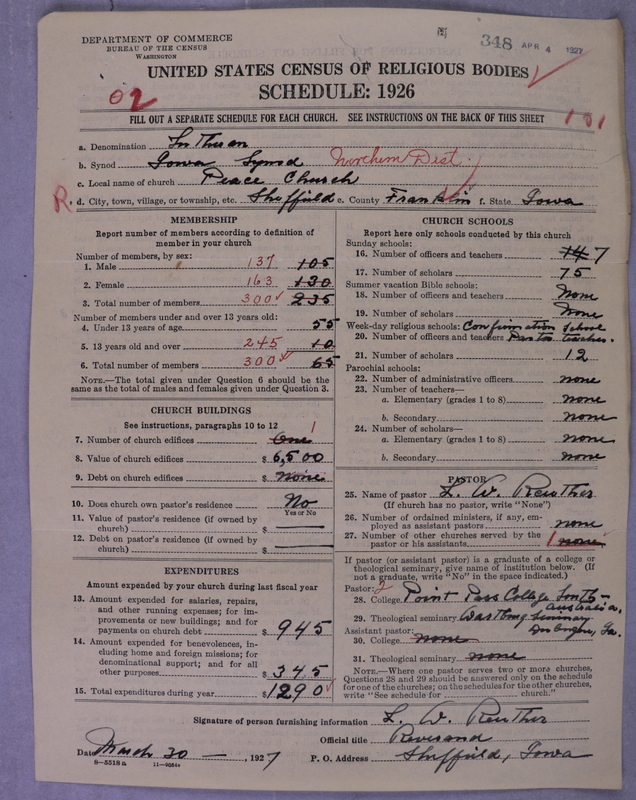 DEPARTMENT OF COMMERCE
BUREAU OF THE CENSUS
WASHINGTON
348 APR 4 1927
UNITED STATES CENSUS OF RELIGIOUS BODIES
SCHEDULE: 1926
02
FILL OUT A SEPARATE SCHEDULE FOR EACH CHURCH. SEE INSTRUCTIONS ON THE BACK OF THIS SHEET
101
a. Denomination Lutheran
b. Synod Iowa Synod Northern Dist.
c. Local name of church Peace Church
R. d. City, town, village, or township, etc. Sheffield e. County Franklin f. State Iowa
MEMBERSHIP
Report number of members according to definition of
member in your church
Number of members, by sex:
1. Male 137 105
2. Female 163 130
3. Total number of members 300 235
Number of members under and over 13 years old:
4. Under 13 years of age 55
5. 13 years old and over 245 10
6. Total number of members 300 65
NOTE.—The total given under Question 6 should be
same as the total of males and females given under Question 3.
CHURCH BUILDINGS
See instructions, paragraphs 10 to 12
7. Number of church edifices One 1
8. Value of church edifices $ 6,500
9. Debt on church edifices $ None
10. Does church own pastor's residence? No
Yes or No
11. Value of pastor's residence (if owned by
church) $
12. Debt on pastor's residence (if owned by
church) $
EXPENDITURES
Amount expended by your church during last fiscal year
13. Amount expended for salaries, repairs,
and other running expenses; for im-
provements or new buildings; and for
payments on church debt $ 945
14. Amount expended for benevolences, in-
cluding home and foreign missions; for
denominational support; and for all
other purposes $ 345
15. Total expenditures during year $ 1290
CHURCH SCHOOLS
Report here only schools conducted by this church
Sunday schools:
16. Number of officers and teachers 14 7
17. Number of scholars 75
Summer vacation Bible schools:
18. Number of officers and teachers None
19. Number of scholars None
Week-day religious schools: Confirmation School
20. Number of officers and teachers Pastor teaches.
21. Number of scholars 12
Parochial schools:
22. Number of administrative officers none
23. Number of teachers—
a. Elementary (grades 1 to 8) none
b. Secondary none
24. Number of scholars—
a. Elementary (grades 1 to 8) none
b. Secondary none
PASTOR
25. Name of pastor L. W. Reuther
(If church has no pastor, write "None")
26. Number of ordained ministers, if any, em-
ployed as assistant pastors none
27. Number of other churches served by the
pastor or his assistants 1 none
If pastor (or assistant pastor) is a graduate of a college or
theological seminary, give name of institution below. (If
not a graduate, write "No" in the space indicated.)
Pastor: 2
28. College Point Pass College South-
Australia.
29. Theological seminary Wartburg Seminary
Dubuque, Ia.
Assistant pastor:
30. College none
31. Theological seminary none
NOTE.—Where one pastor serves two or more churches,
Questions 28 and 29 should be answered only on the schedule
for one of the churches; on the schedules for the other churches,
write "See schedule for church."
Signature of person furnishing information L. W. Reuther
Official title Reverand
Date March 30 — , 1927 P. O. Address Sheffield, Iowa
8—5518a 11—9554a